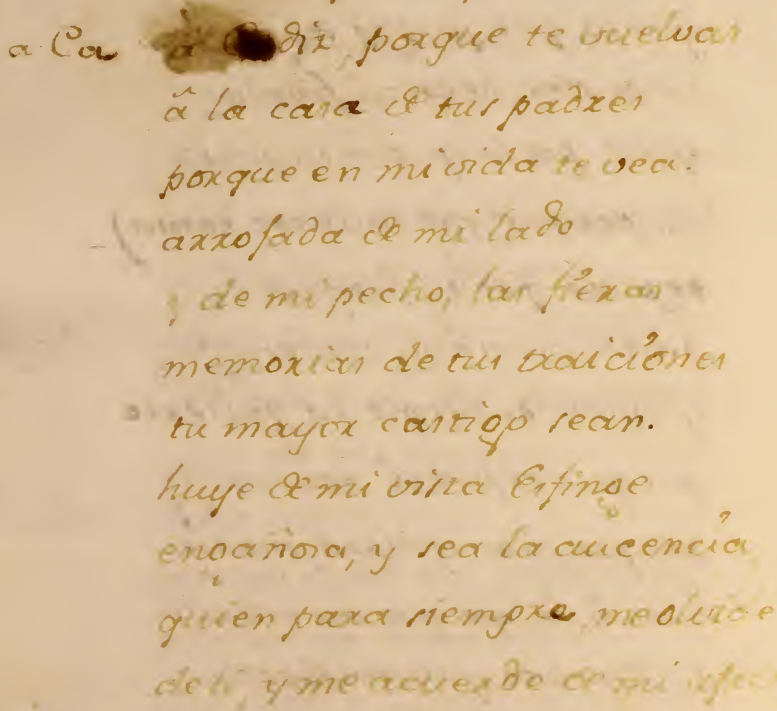 a Ca à Cadiz, porque te vuelvas
â la casa de tus padres
porque en mi vida te vea.
arrojada de mi lado
y de mi pecho, las fieras
memorias de tus traiciones
tu mayor castigo sean.
huye de mi vista Esfinge
engañosa, y sea la aucencia
quien para siempre me olvide
de ti, y me acuerde de mi